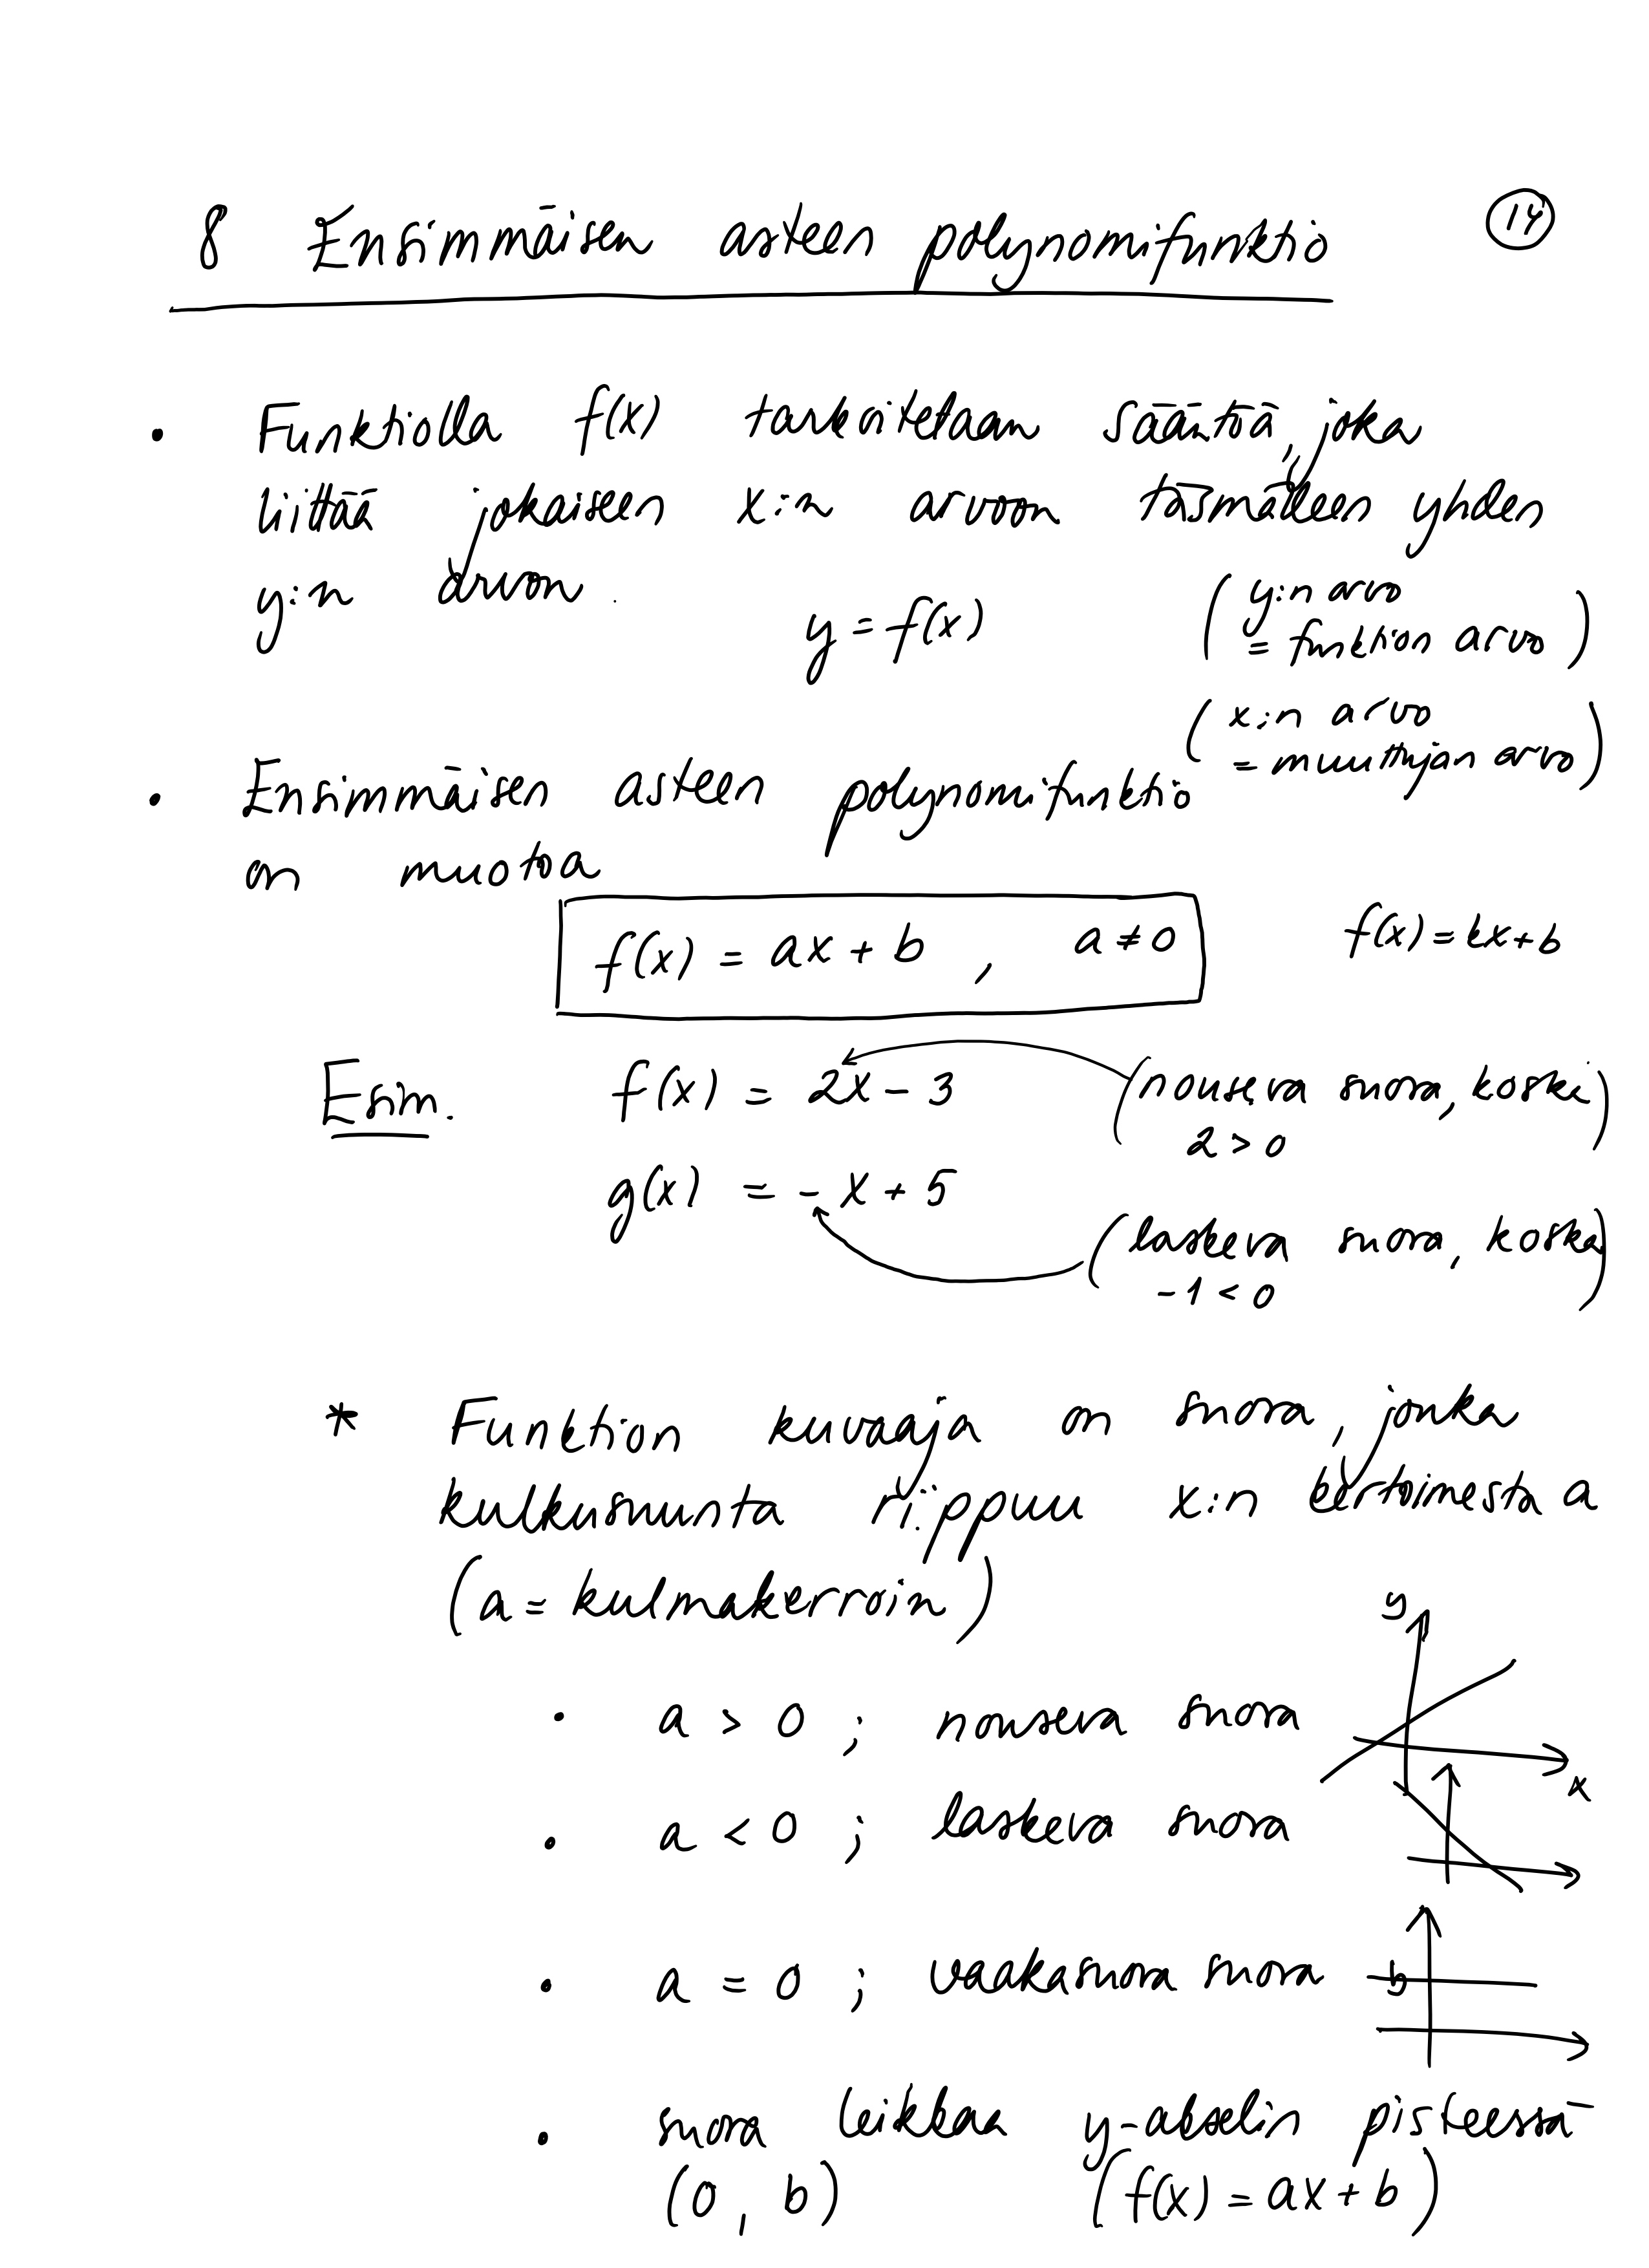 8 Ensimmäisen asteen polynomifunktio
14
• Funktiolla f(x) tarkoitetaan sääntöä, joka
liittää jokaiseen x:n arvoon täsmälleen yhden
y:n arvon.
y = f(x)
( y:n arvo
= funktion arvo )
( x:n arvo
= muuttujan arvo )
• Ensimmäisen asteen polynomifunktio
on muotoa
f(x) = ax + b , a ≠ 0
f(x) = kx + b
Esim. f(x) = 2x - 3
(nouseva suora, koska
2 > 0)
g(x) = -x + 5
(laskeva suora, koska
-1 < 0)
* Funktion kuvaaja on suora, jonka
kulkusuunta riippuu x:n kertoimesta a
(a = kulmakerroin)
y
• a > 0 ; nouseva suora
x
• a < 0 ; laskeva suora
• a = 0 ; vaakasuora suora
b
• suora leikkaa y-akselin pisteessä
(0, b) (f(x) = ax + b)